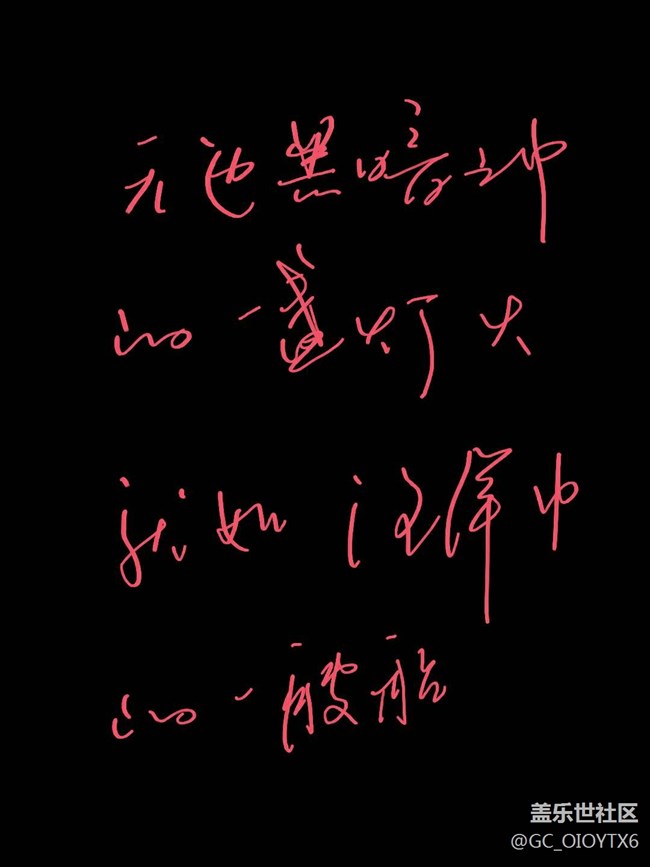 无边黑暗之中
的一盏灯火
就如汪洋中
的一般船
盖乐世社区
@GC_OIOYTX6